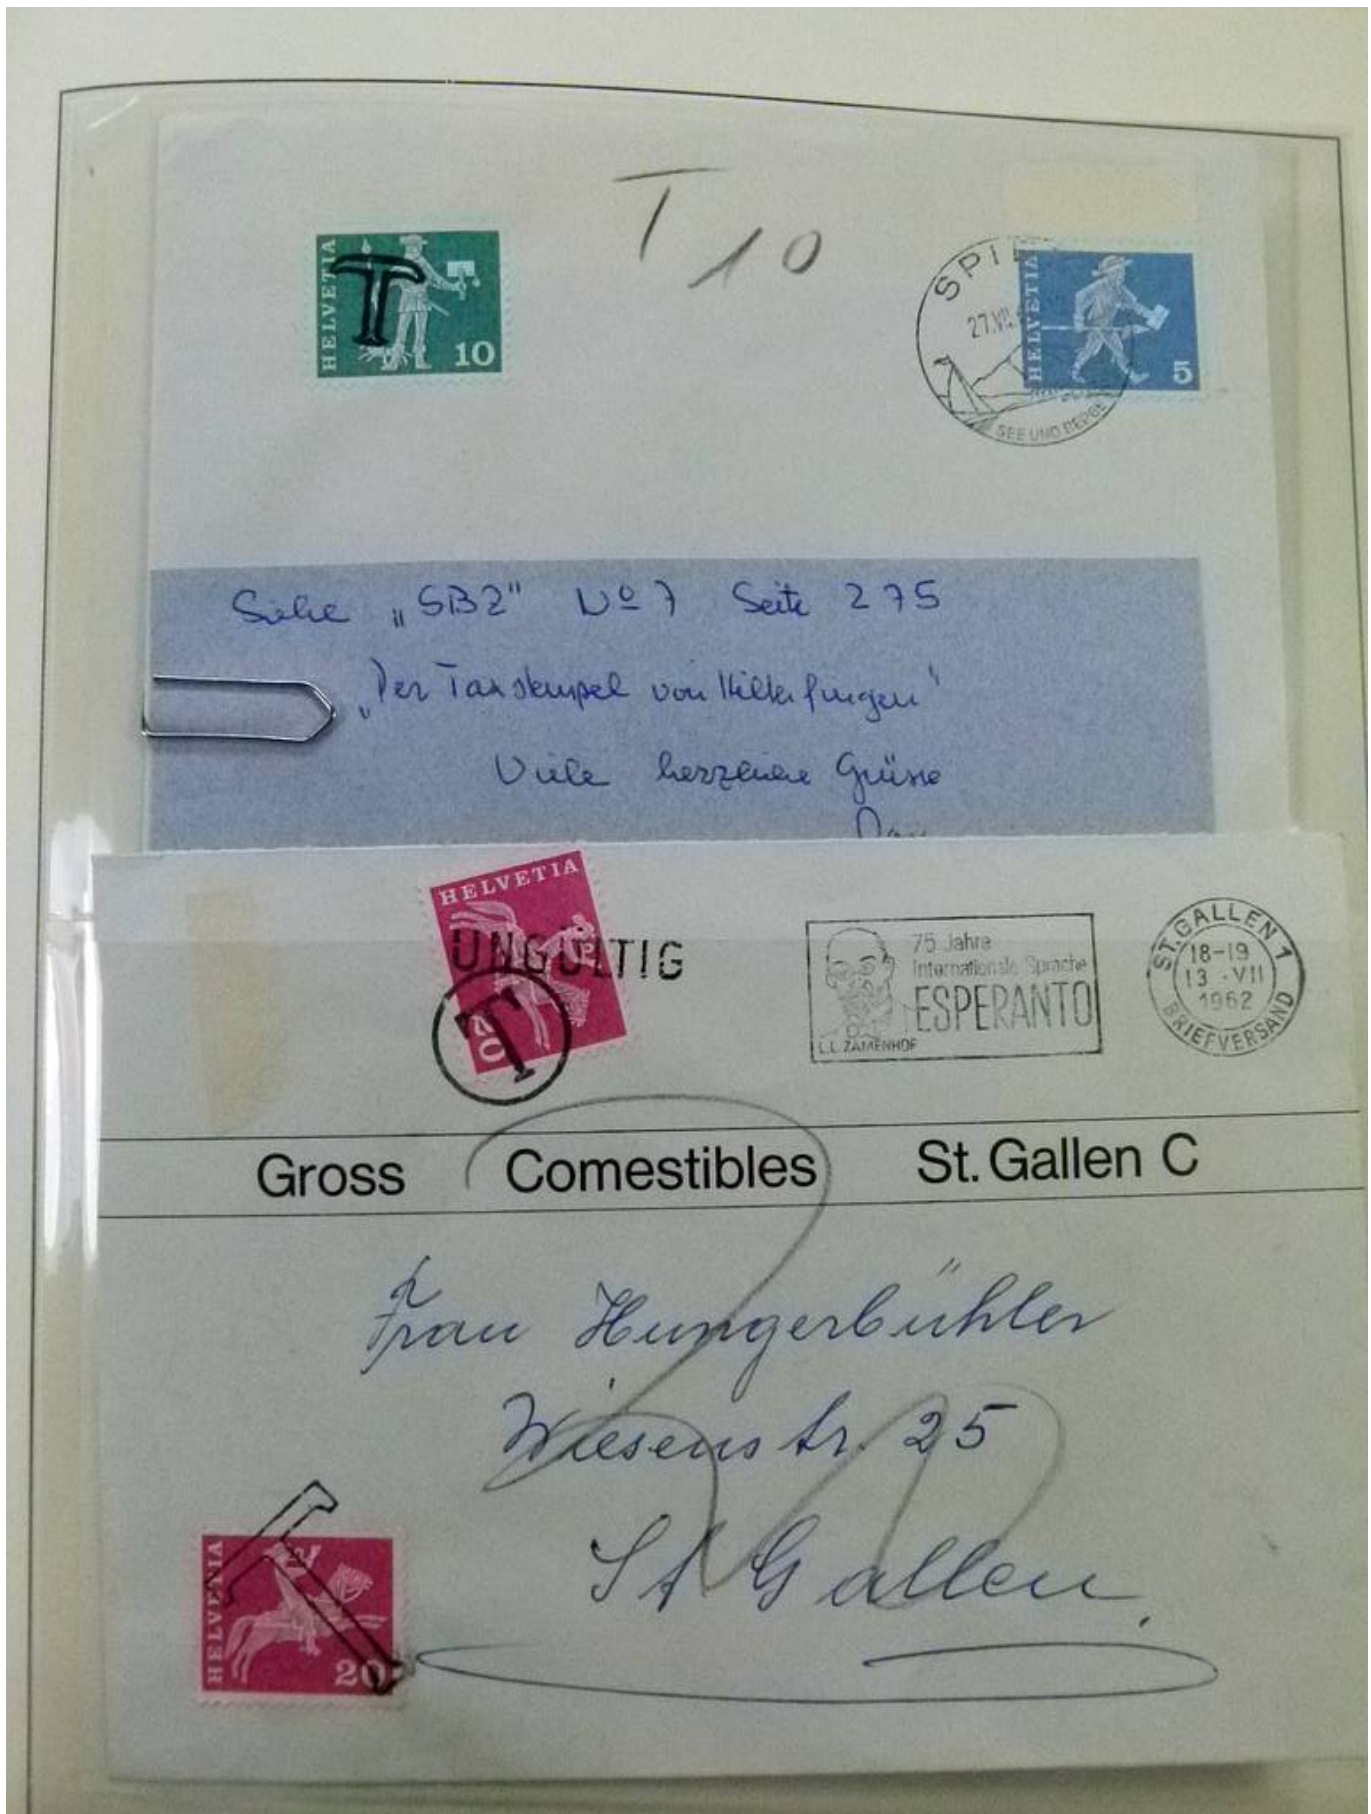 T 10
HELVETIA
T
10
SPIE
27.VII.
SEE UND BERGE
HELVETIA
5
Siehe „SBZ" No 7 Seite 275
„Der Taxstempel von Hilterfingen"
Viele herzliche Grüsse
HELVETIA
20
UNGÜLTIG
T
75 Jahre
Internationale Sprache
ESPERANTO
L.L. ZAMENHOF
ST. GALLEN 1
18-19
13.VII
1962
BRIEFVERSAND
Gross Comestibles St. Gallen C
20
Frau Hungerbühler
Wiesenstr. 25
St Gallen.
T
HELVETIA
20